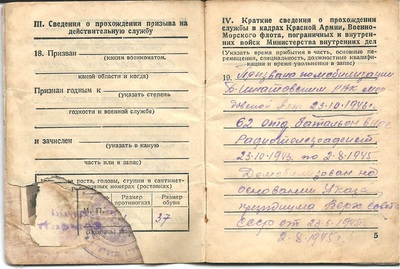 III. Сведения о прохождении призыва на
действительную службу
18. Призван
(каким военкоматом,
какой области и когда)
Признан годным к
(указать степень
годности к военной службе)
и зачислен
(указать в какую
часть или в запас)
роста, головы, ступни и сантимет-
номерах (ростовках)
Размер
противогаза
Размер
обуви
37
IV. Краткие сведения о прохождении
службы в кадрах Красной Армии, Военно-
Морского флота, пограничных и внутрен-
них войск Министерства внутренних дел
(Указать время прибытия в часть, основные пе-
ремещения, специальность, должностные квалифи-
кации и время увольнения в запас)
19. Призвана по мобилизации
РВК
23.10.1943г.
62 отд батальон
23.10.1943 по 2-8-1945
Демобилизован на
основании Указа
президиума Верх совета
СССР от
2-8-1945г.
5